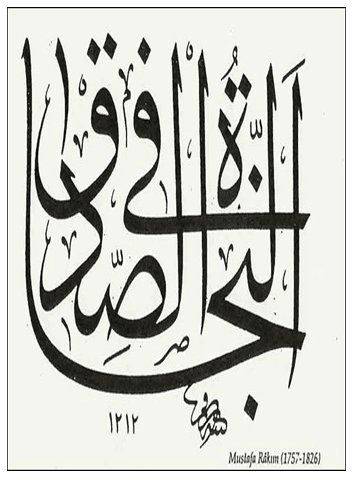 النجاةُ فى الصِّدق
١٢١٢
Mustafa Râkım (1757-1826)